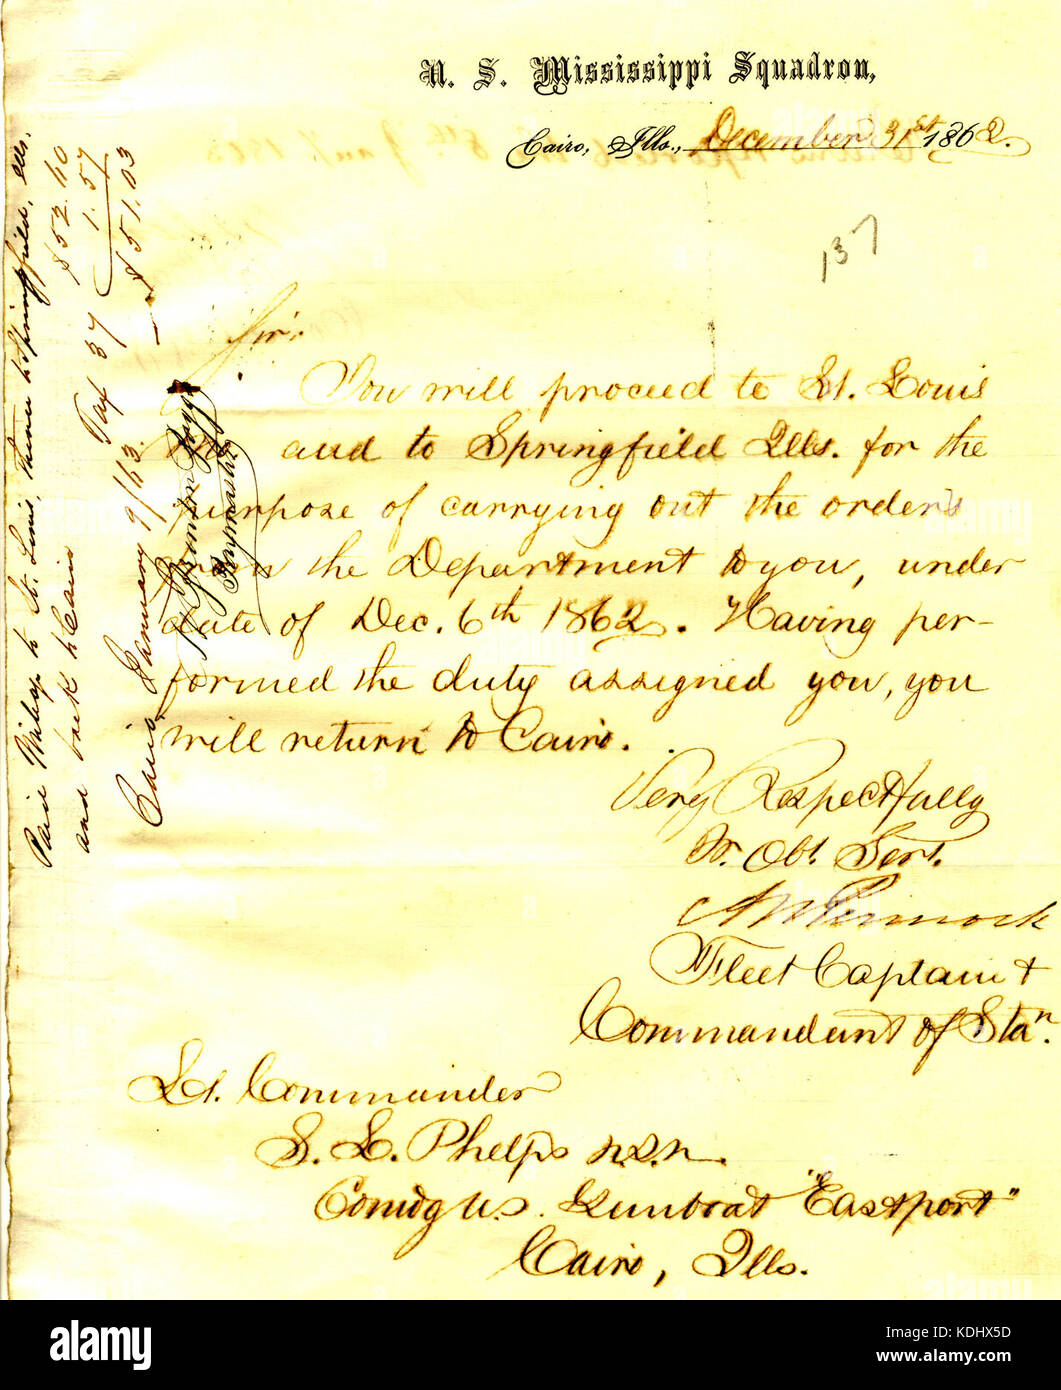 U. S. Mississippi Squadron,
Cairo, Ills., December 31st 1862.
137
Sir:
You will proceed to St. Louis
and to Springfield Ills. for the
purpose of carrying out the orders
from the Department to you, under
date of Dec. 6th 1862. Having per-
formed the duty assigned you, you
will return to Cairo.
Very Respectfully
Yr. Obt. Servt.
A M Pennock
Fleet Captain &
Commandant of Stan.
Lt. Commander
S. L. Phelps U.S.N.
Comdg U.S. Gunboat "Eastport"
Cairo, Ills.
Paid Mileage to St. Louis, thence to Springfield, Ills.
and back to Cairo $52.40
Tax 37 1.57
$51.03
Cairo, January 9/63.
Paymaster
alamy
Image ID: KDHX5D
www.alamy.com